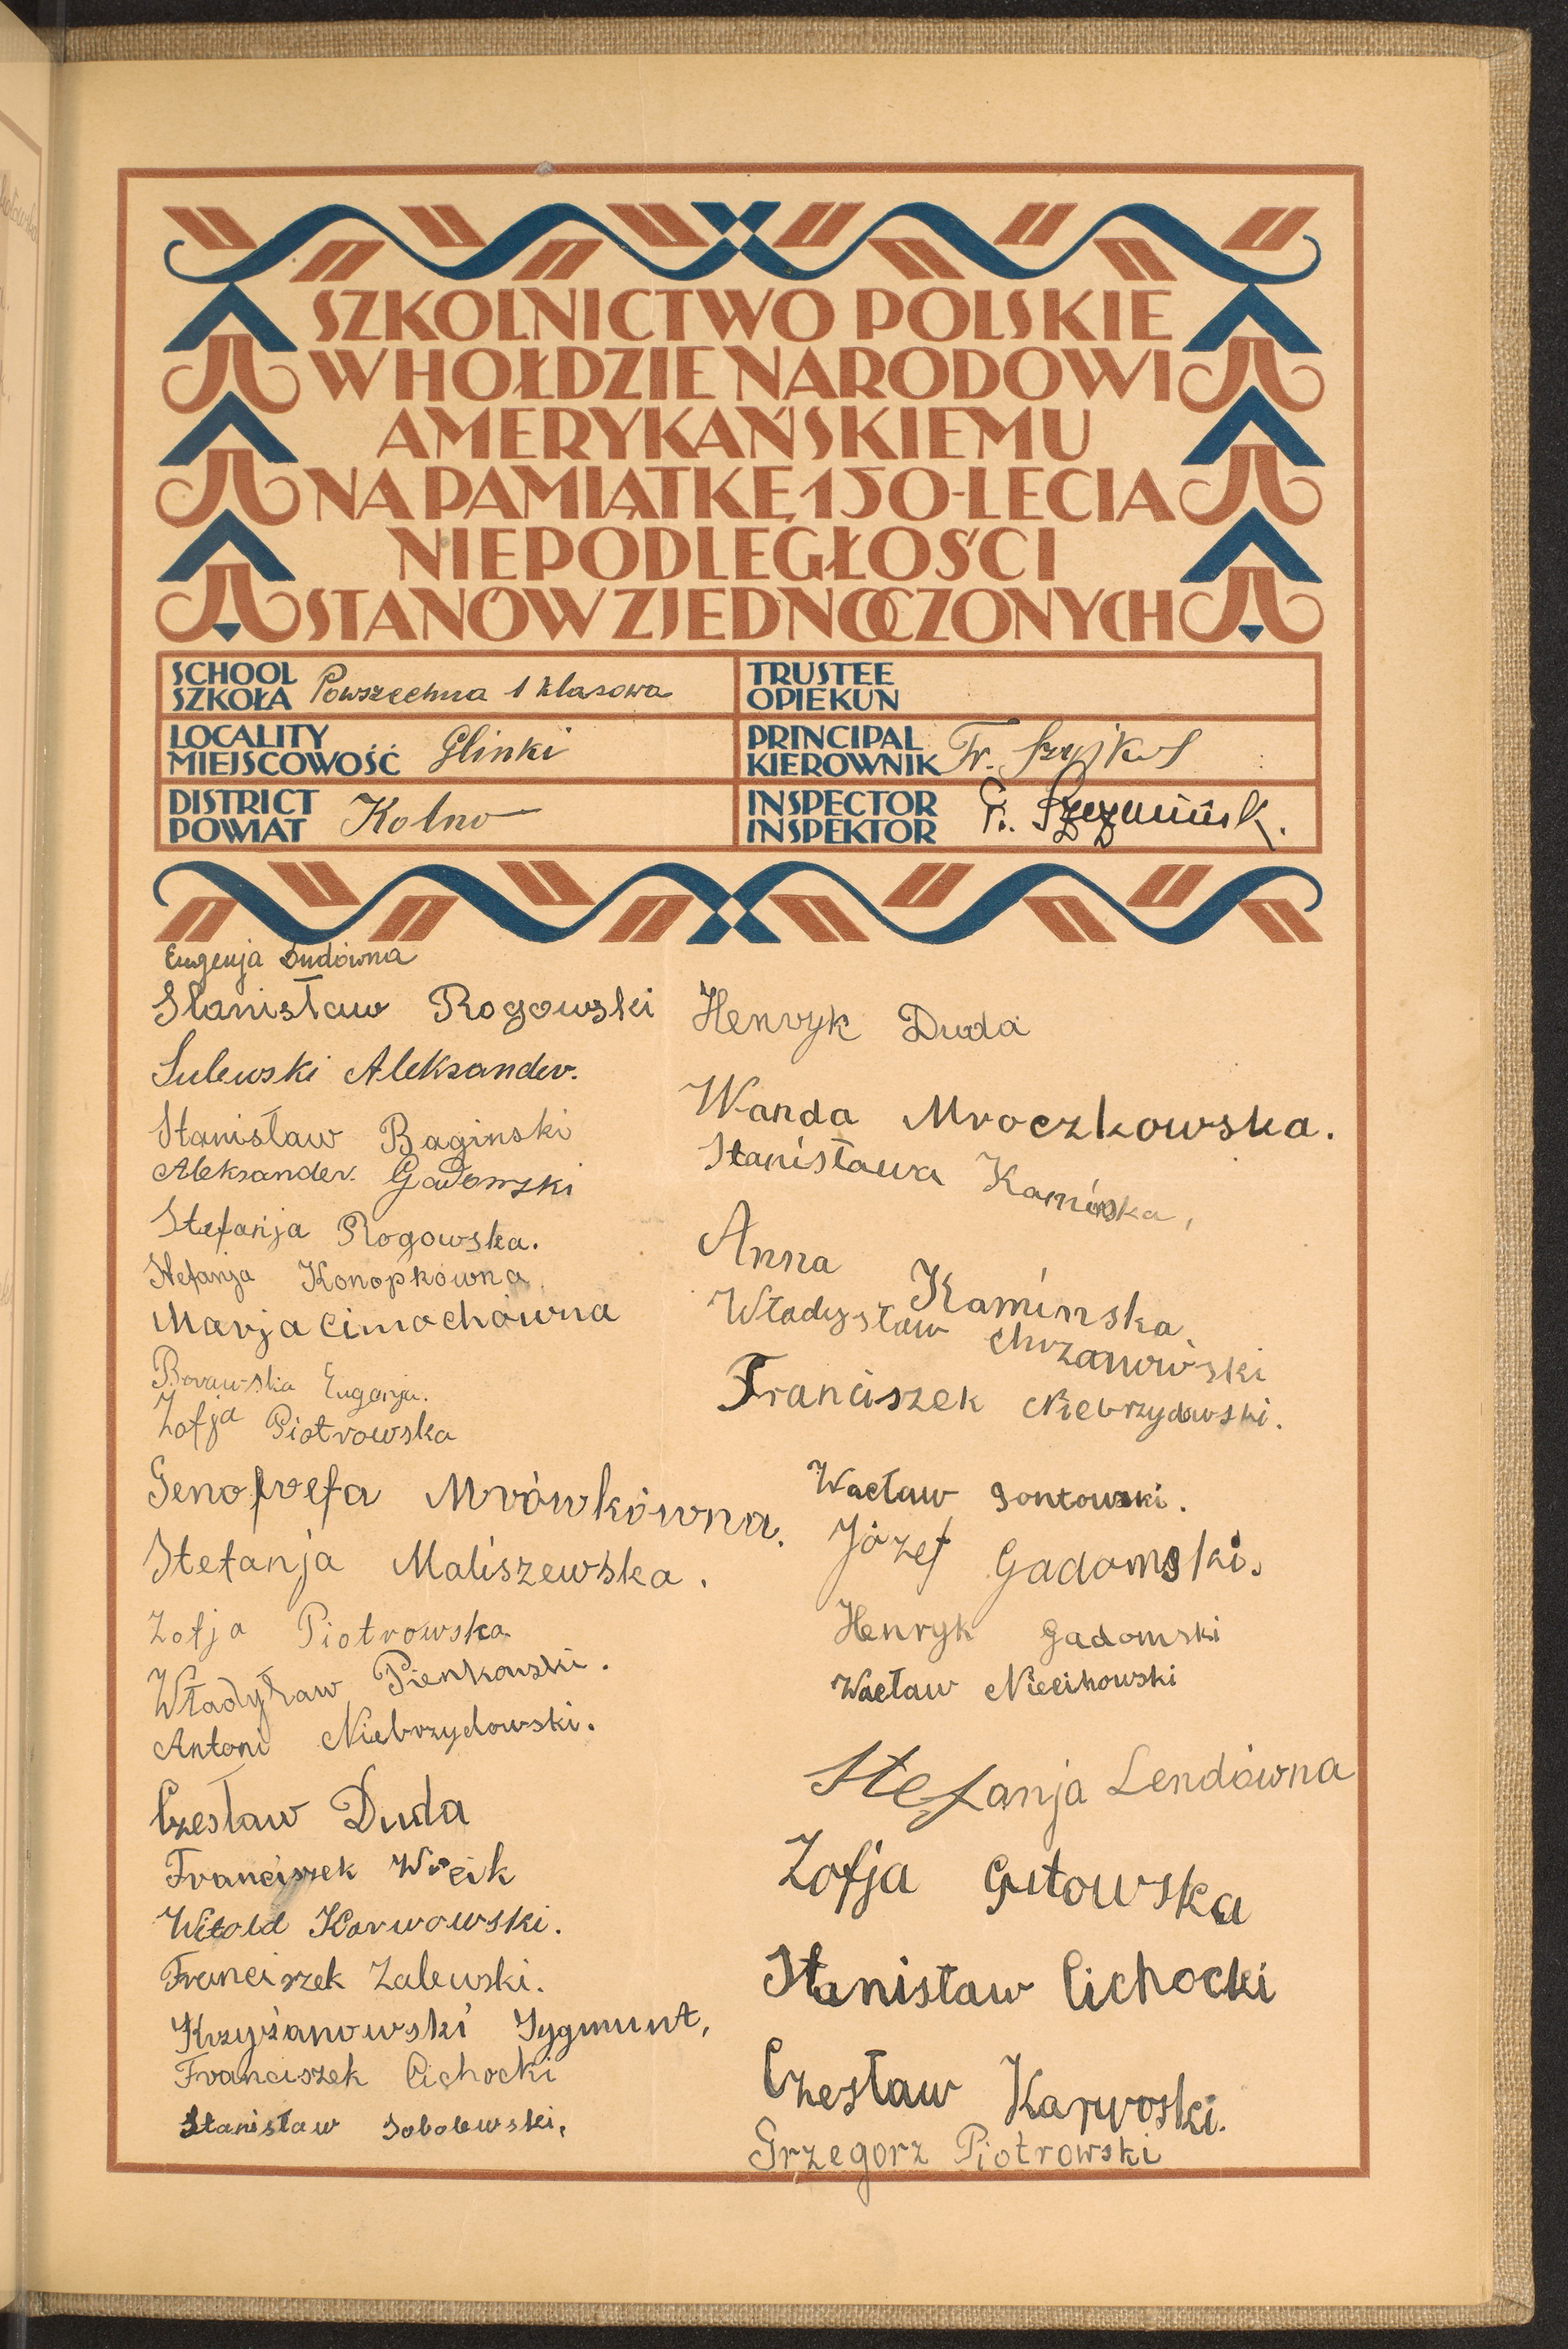 SZKOLNICTWO POLSKIE
W HOŁDZIE NARODOWI
AMERYKAŃSKIEMU
NA PAMIĄTKĘ 150-LECIA
NIEPODLEGŁOŚCI
STANÓW ZJEDNOCZONYCH
SCHOOL
SZKOŁA Powszechna 1 klasowa
TRUSTEE
OPIEKUN
LOCALITY
MIEJSCOWOŚĆ Glinki
PRINCIPAL
KIEROWNIK Fr.
DISTRICT
POWIAT Kolno
INSPECTOR
INSPEKTOR
Eugenja Dudówna
Stanisław Rogowski
Sulewski Aleksander.
Stanisław Baginski
Aleksander. Gadomski
Stefanja Rogowska.
Stefanja Konopkówna
Marja Cimochówna
Borawska Eugenja.
Zofja Piotrowska
Genofwefa Mrówkówna.
Stefanja Maliszewska.
Zofja Piotrowska
Władysław Pienkowski.
Antoni Niebrzydowski.
Czesław Duda
Franciszek Wicik
Witold Karwowski.
Franciszek Zalewski.
Krzyżanowski Zygmunt,
Franciszek Cichocki
Stanisław Sobolewski,
Henryk Duda
Wanda Mroczkowska.
Stanisława Kamińska,
Anna Kamínska,
Władysław Chrzanowski
Franciszek Niebrzydowski.
Wacław Gontowski.
Józef Gadomski.
Henryk Gadomski
Wacław Niecihowski
Stefanja Lendówna
Zofja Gutowska
Stanisław Cichocki
Czesław Karwoski.
Grzegorz Piotrowski